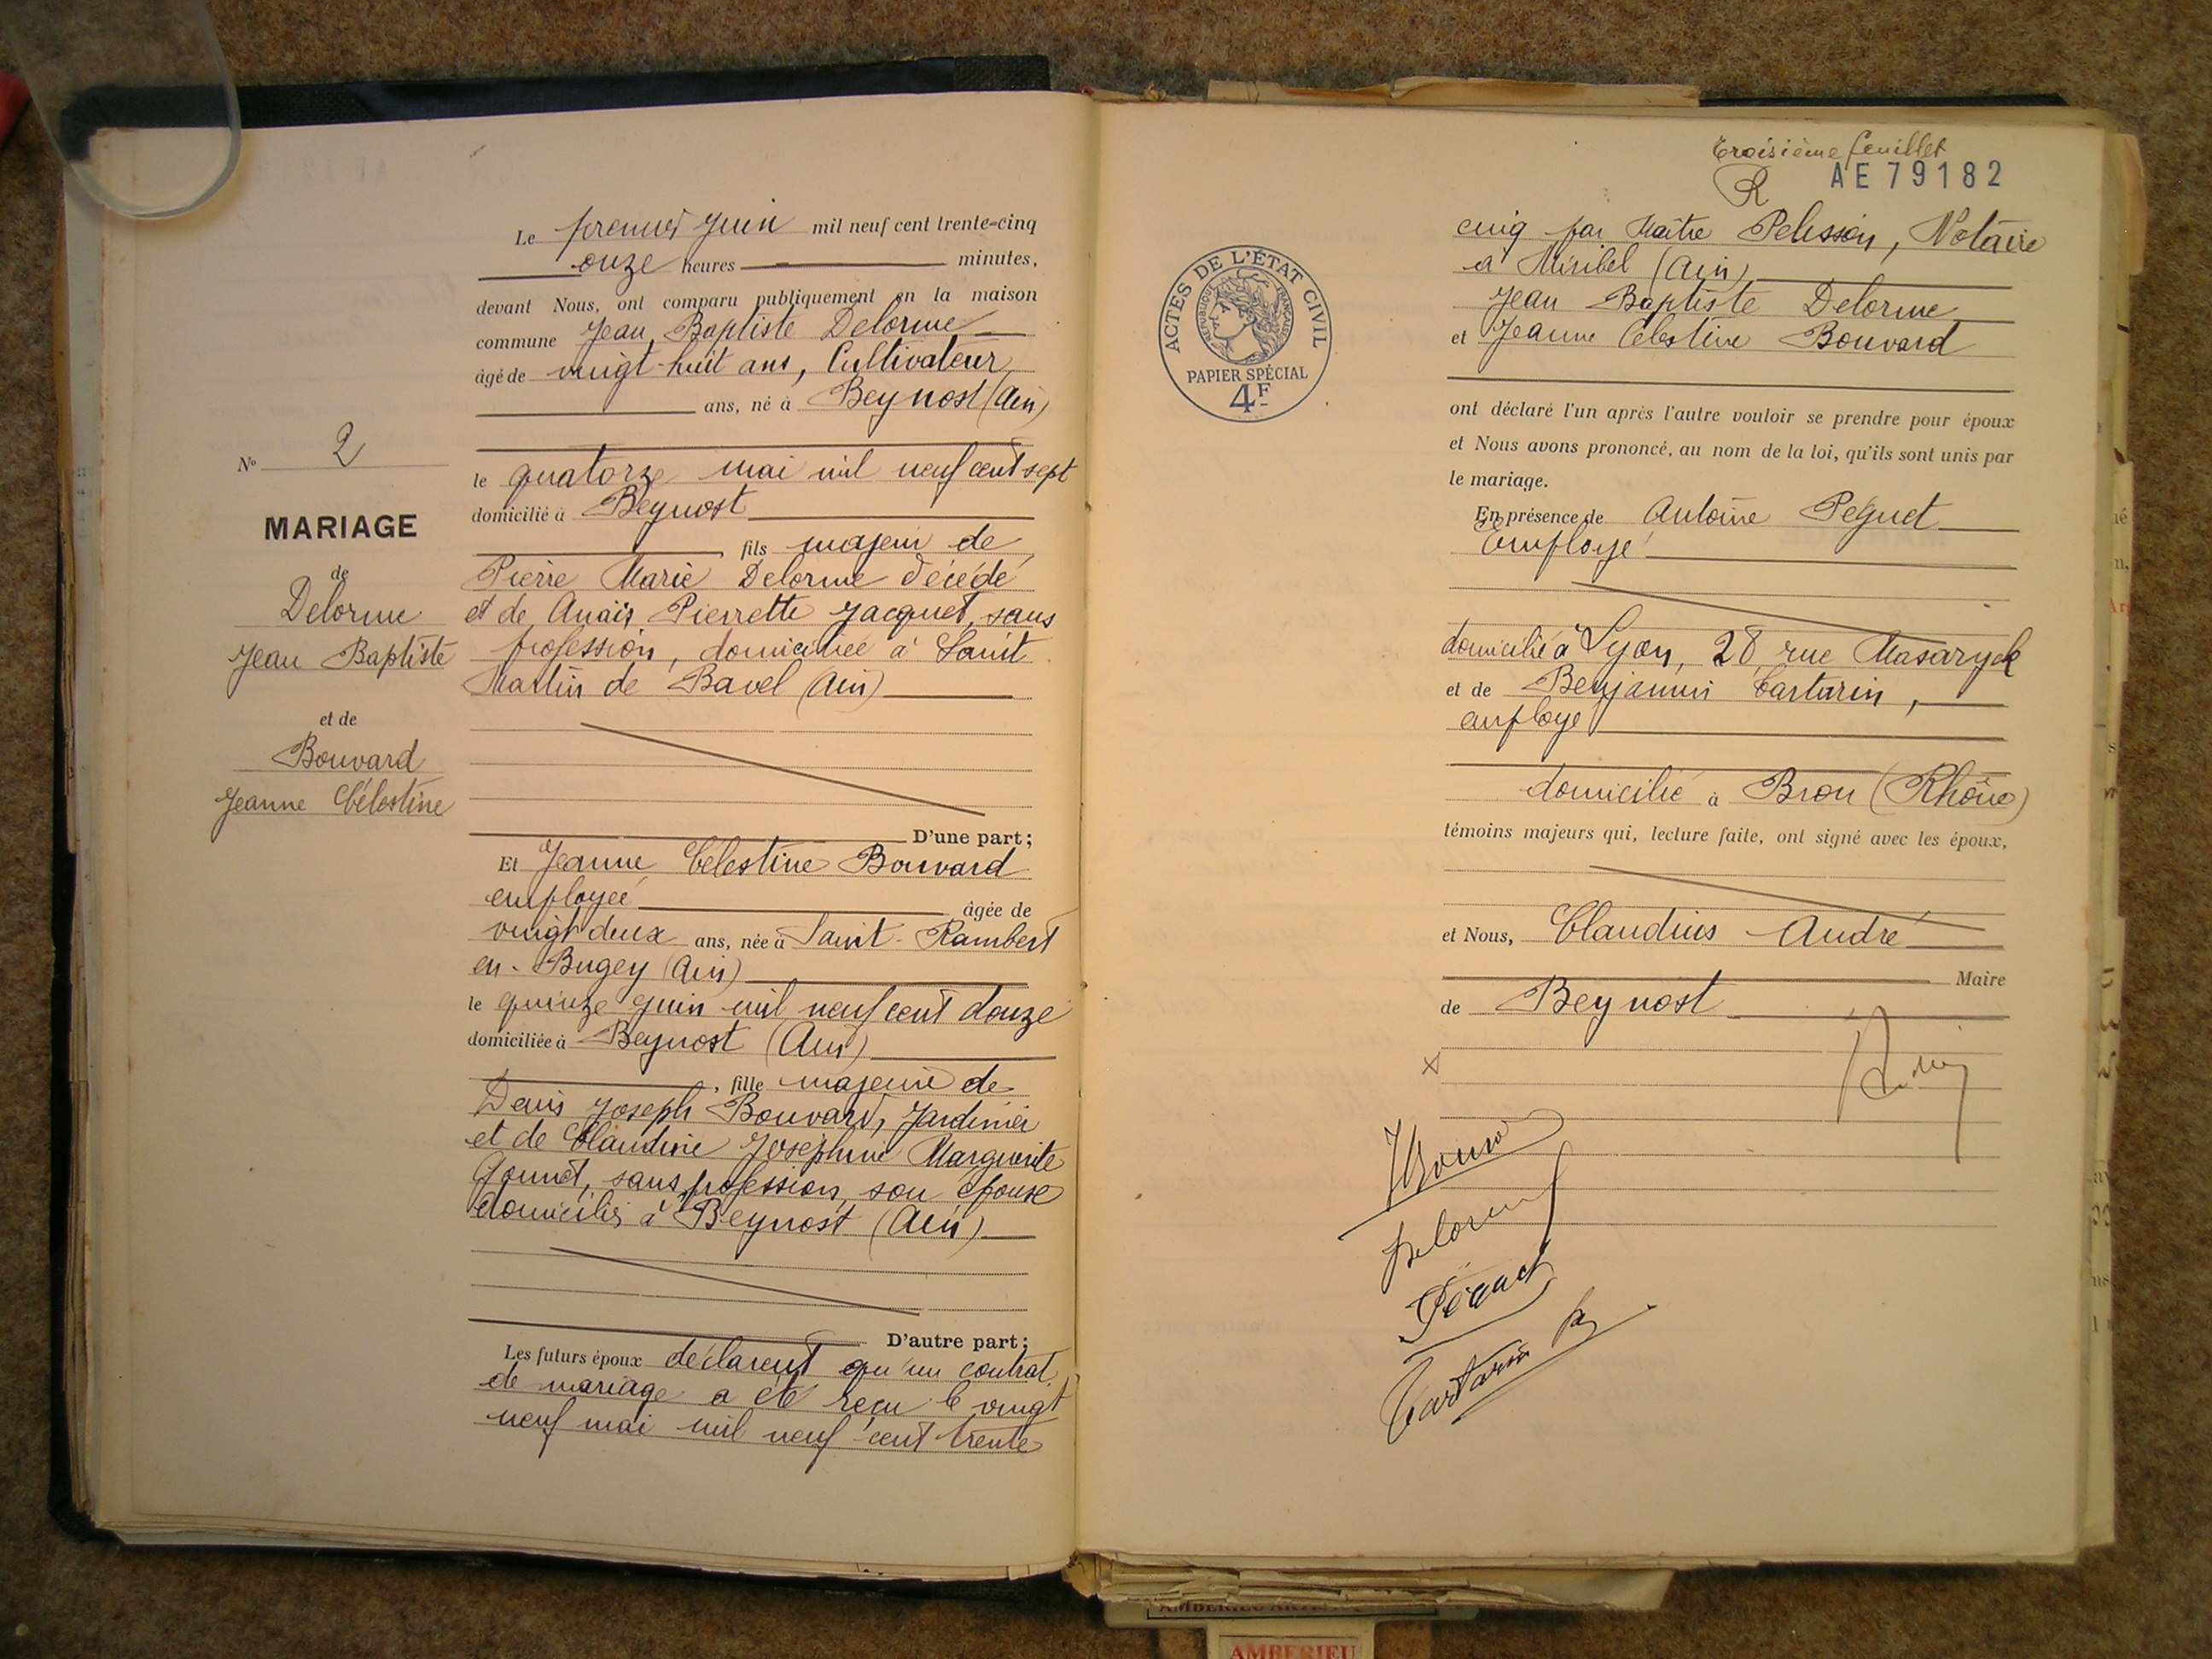 Le premier Juin mil neuf cent trente-cinq
onze heures minutes,
devant Nous, ont comparu publiquement en la maison
commune Jean Baptiste Delorme
âgé de vingt-huit ans, Cultivateur
ans, né à Beynost (Ain)
le quatorze mai mil neuf cent sept
domicilié à Beynost
, fils majeur de
Pierre Marie Delorme décédé
et de Anaïs Pierrette Jacquet, sans
profession, domiciliée à Saint
Martin de Bavel (Ain)
D'une part;
Et Jeanne Célestine Bouvard
employée âgée de
vingt deux ans, née à Saint-Rambert
en-Bugey (Ain)
le quinze juin mil neuf cent douze
domiciliée à Beynost (Ain)
, fille majeure de
Denis Joseph Bouvard, Jardinier
et de Claudine Joséphine Marguerite
Gonnet, sans profession, son épouse
domiciliés à Beynost (Ain)
D'autre part;
Les futurs époux déclarent qu'un contrat
de mariage a été reçu le vingt
neuf mai mil neuf cent trente
N° 2
MARIAGE
de
Delorme
Jean Baptiste
et de
Bouvard
Jeanne Célestine
Troisième feuillet
R AE79182
ACTES DE L'ÉTAT CIVIL
RÉPUBLIQUE FRANÇAISE
PAPIER SPÉCIAL
4F
cinq par Maître Pelisson, Notaire
à Miribel (Ain)
Jean Baptiste Delorme
et Jeanne Célestine Bouvard
ont déclaré l'un après l'autre vouloir se prendre pour époux
et Nous avons prononcé, au nom de la loi, qu'ils sont unis par
le mariage.
En présence de Antoine Péguet
Employé
domicilié à Lyon, 28 rue Masaryck
et de Benjamin Tartarin,
employé
domicilié à Bron (Rhône)
témoins majeurs qui, lecture faite, ont signé avec les époux,
et Nous, Claudius André
Maire
de Beynost
Delorme
Péguet
Tartarin
AMBERIEU